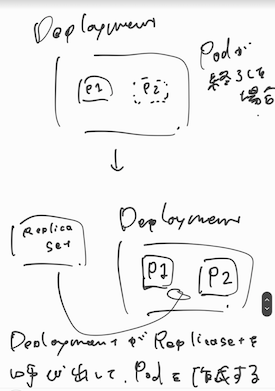 Deployment
Podが
終了した
場合
P1
P2
Replica
Set
Deployment
P1
P2
Deployment が Replicasetを
呼び出して、Podを作成する